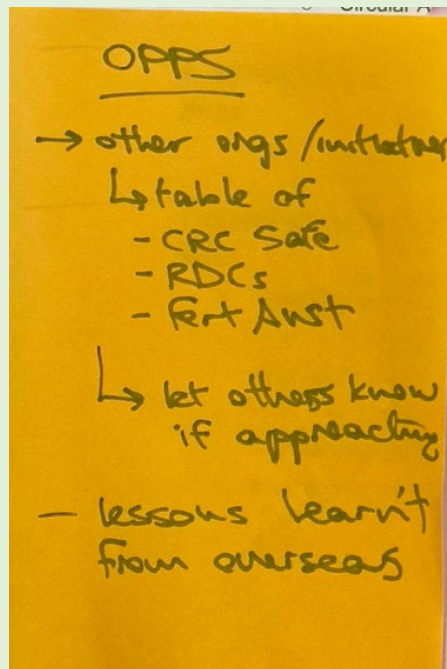 Circular A
OPPS
→ other orgs/initiatives
↳ table of
- CRC Safe
- RDCs
- Fert Aust
↳ let others know
if approaching
- lessons learn't
from overseas